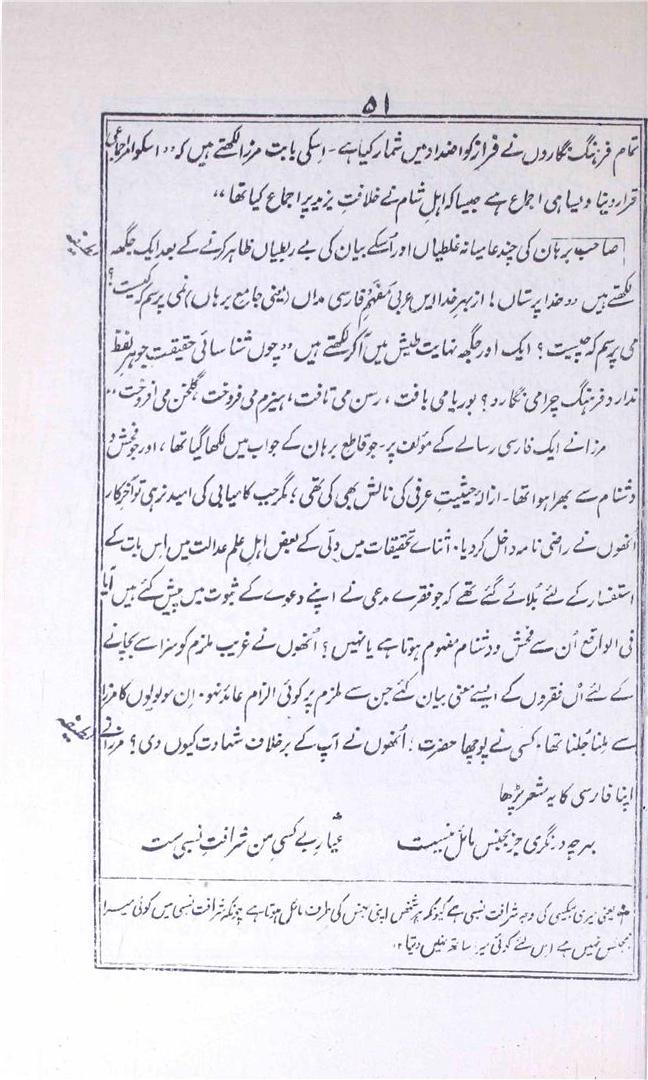 ۵۱
تمام فرہنگ نگاروں نے فراز کو اضداد میں شمار کیا ہے - اسکی بابت مرزا لکھتے ہیں کہ ،، اسکو امر اجماعی
قرار دینا ویسا ہی اجماع ہے جیسا کہ اہلِ شام نے خلافتِ یزید پر اجماع کیا تھا ،،
لطیفہ
صاحب برہان کی چند عامیانہ غلطیاں اور اُسکے بیان کی بے ربطیاں ظاہر کرنے کے بعد ایک جگہ
لکھتے ہیں ،، خدا پرستاں! از بہرِ خدا ایں عربی مَفہمِ فارسی مداں (یعنی جامع برہاں) نمی پرسم کہ کیست؟
می پرسم کہ چیست؟ ایک اور جگہ نہایت طیش میں آکر لکھتے ہیں ،، چوں شناسائی حقیقتِ جوہرِ لفظ
ندارد فرہنگ چرا می نگارد؟ بوریا می بافت ، رسن می تافت ، ہیزم می فروخت ، گلخن می افروخت ،،
مرزا نے ایک فارسی رسالے کے مؤلف پر - جو قاطع برہان کے جواب میں لکھا گیا تھا ، اور جو فحش و
دشنام سے بھرا ہوا تھا - ازالۂ حیثیتِ عرفی کی نالش بھی کی تھی ؛ مگر جب کامیابی کی امید نرہی تو آخرکار
انھوں نے راضی نامہ داخل کر دیا . اثناے تحقیقات میں دلّی کے بعض اہلِ علم عدالت میں اس بات کے
استفسار کے لئے بُلائے گئے تھے کہ جو فقرے مدعی نے اپنے دعوے کے ثبوت میں پیش کئے ہیں آیا
فی الواقع اُن سے فحش و دشنام مفہوم ہوتا ہے یا نہیں ؟ اُنھوں نے غریب ملزم کو سزا سے بچانے
کے لئے اُن فقروں کے ایسے معنی بیان کئے جن سے ملزم پر کوئی الزام عائد نہو . اِن مولویوں کا مرزا
لطیفہ
سے مِلنا جُلنا تھا . کسی نے پوچھا حضرت ! اُنھوں نے آپ کے برخلاف شہادت کیوں دی ؟ مرزا نے
اپنا فارسی کا یہ شعر پڑھا
بہرچہ در نگری جز بجنس مائل نیست عیارِ بے کسیِ من شرافتِ نسبی ست
یعنی میری بیکسی کی وجہ شرافت نسبی ہے کیونکہ ہر شخص اپنی جنس کی طرف مائل ہوتا ہے چونکہ شرافت نسبی میں کوئی میرا
ہمجنس نہیں ہے اس لئے کوئی میرا ساتھ نہیں دیتا